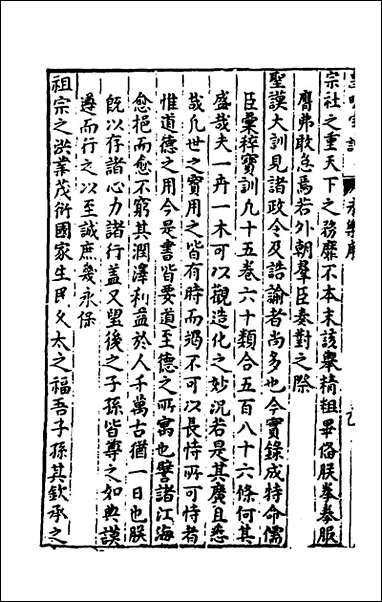 宗社之重天下之務靡不本末該舉精粗畢備朕拳拳服
膺弗敢怠焉若外朝羣臣奏對之際
聖謨大訓見諸政令及誥諭者尚多也今實錄成特命儒
臣彙稡寶訓九十五卷六十類合五百八十六條何其
盛哉夫一卉一木可以觀造化之妙況若是其廣且悉
哉凡世之寶用之皆有時而竭不可以長恃所可恃者
惟道德之用今是書皆要道至德之所寓也譬諸江海
愈挹而愈不窮其潤澤利益於人千萬古猶一日也朕
既以存諸心力諸行蓋又望後之子孫皆尊之如典謨
遵而行之以至誠庶幾永保
祖宗之洪業茂衍國家生民久太之福吾子孫其欽承之